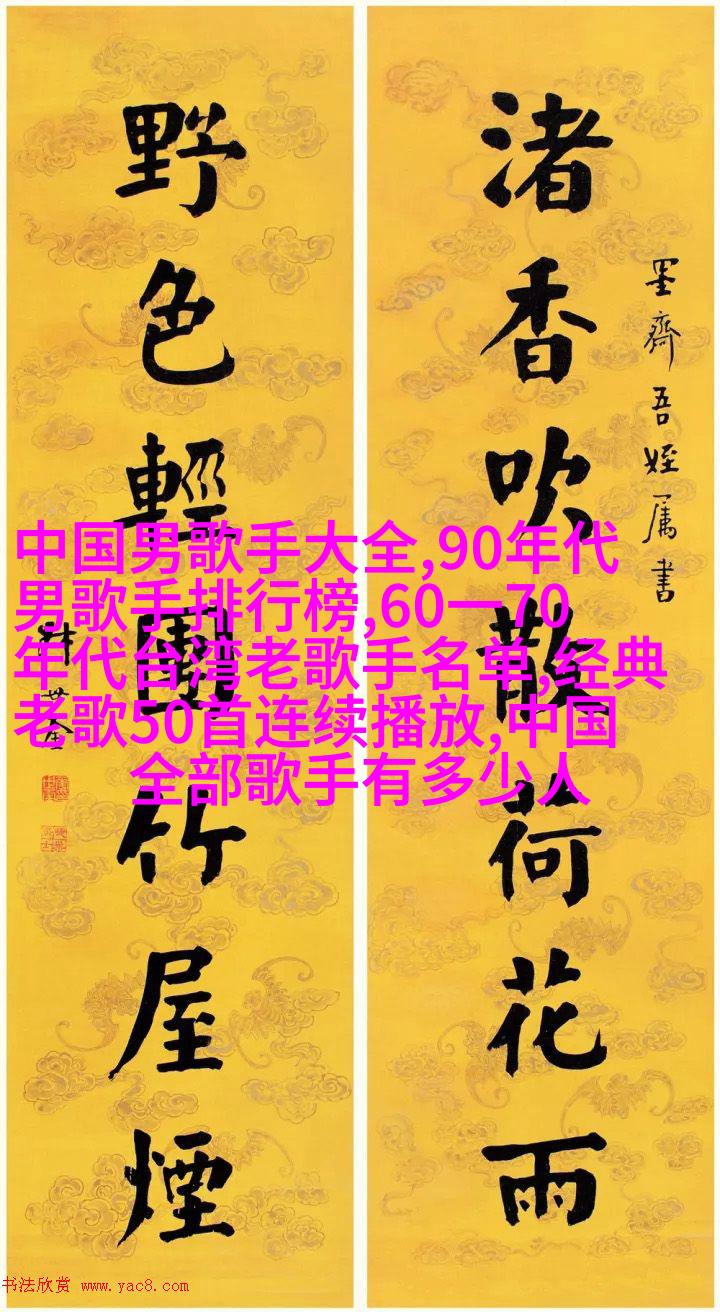 渚香吹散荷花雨
墨齋吾姪属書
野色輕團竹屋煙
世荃
中国男歌手大全,90年代
男歌手排行榜,60一70
年代台湾老歌手名单,经典
老歌50首连续播放,中国
全部歌手有多少人
书法欣赏 www.yac8.com